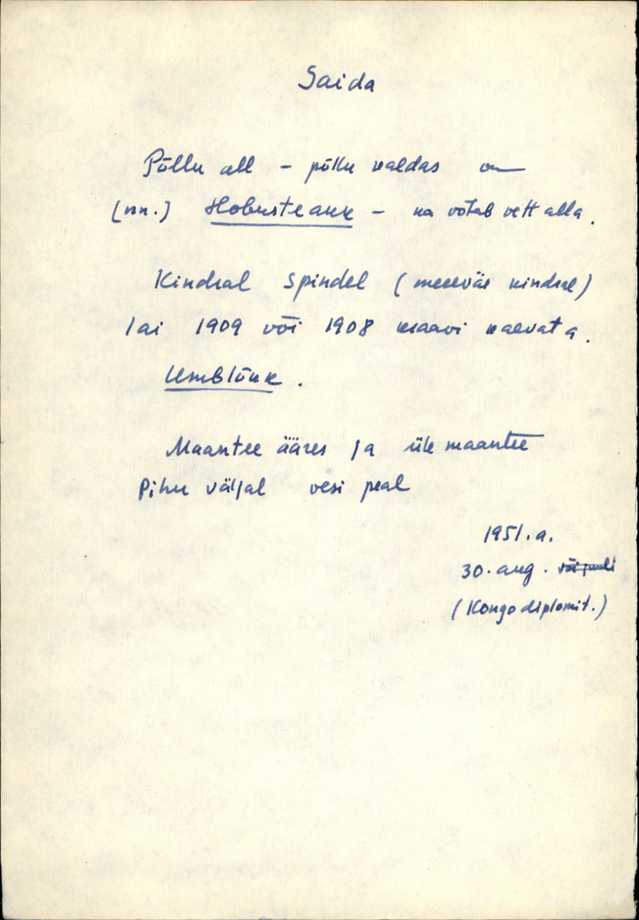 Saida
Põllu all – põllu kaldas on
(nn.) Hobusteauk – ka võtab vett alla.
Kindral Spindel (merevãe kindral)
lai 1909 või 1908 kraavi kaevata.
Umblõuk.
Maantee ääres ja üle maantee
Pihu väljal vesi peal
1951.a.
30. aug. või juuli
(Kongo diplomit.)